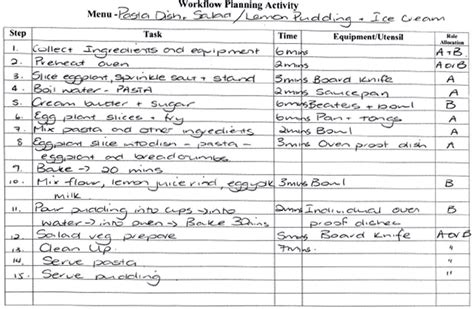 Workflow Planning Activity
Menu - Pasta Dish, Salad / Lemon Pudding + Ice Cream
Step Task Time Equipment/Utensil Role Allocation
1. Collect Ingredients and equipment 6mins A+B
2. Preheat oven 2mins A or B
3. Slice eggplant, sprinkle salt + stand 5mins Board Knife A
4. Boil water - PASTA 2mins Saucepan A
5. Cream butter + sugar 6mins Beaters + bowl B
6. Egg plant slices + fry 6mins Pan + tongs A
7. Mix pasta and other ingredients 2mins Bowl A
8 Eggplant slice into dish - pasta - 3mins Oven proof dish A
eggplant and breadcrumbs
9. Bake → 20 mins
10. Mix flour, lemon juice rind, egg yolk 3mins Bowl B
milk
11. Pour pudding into cups → into 2mins Individual oven B
water → into oven → Bake 30mins proof dishes
12. Salad veg prepare 5mins Board Knife A or B
13. Clean Up 7mins
14. Serve pasta
15. Serve pudding